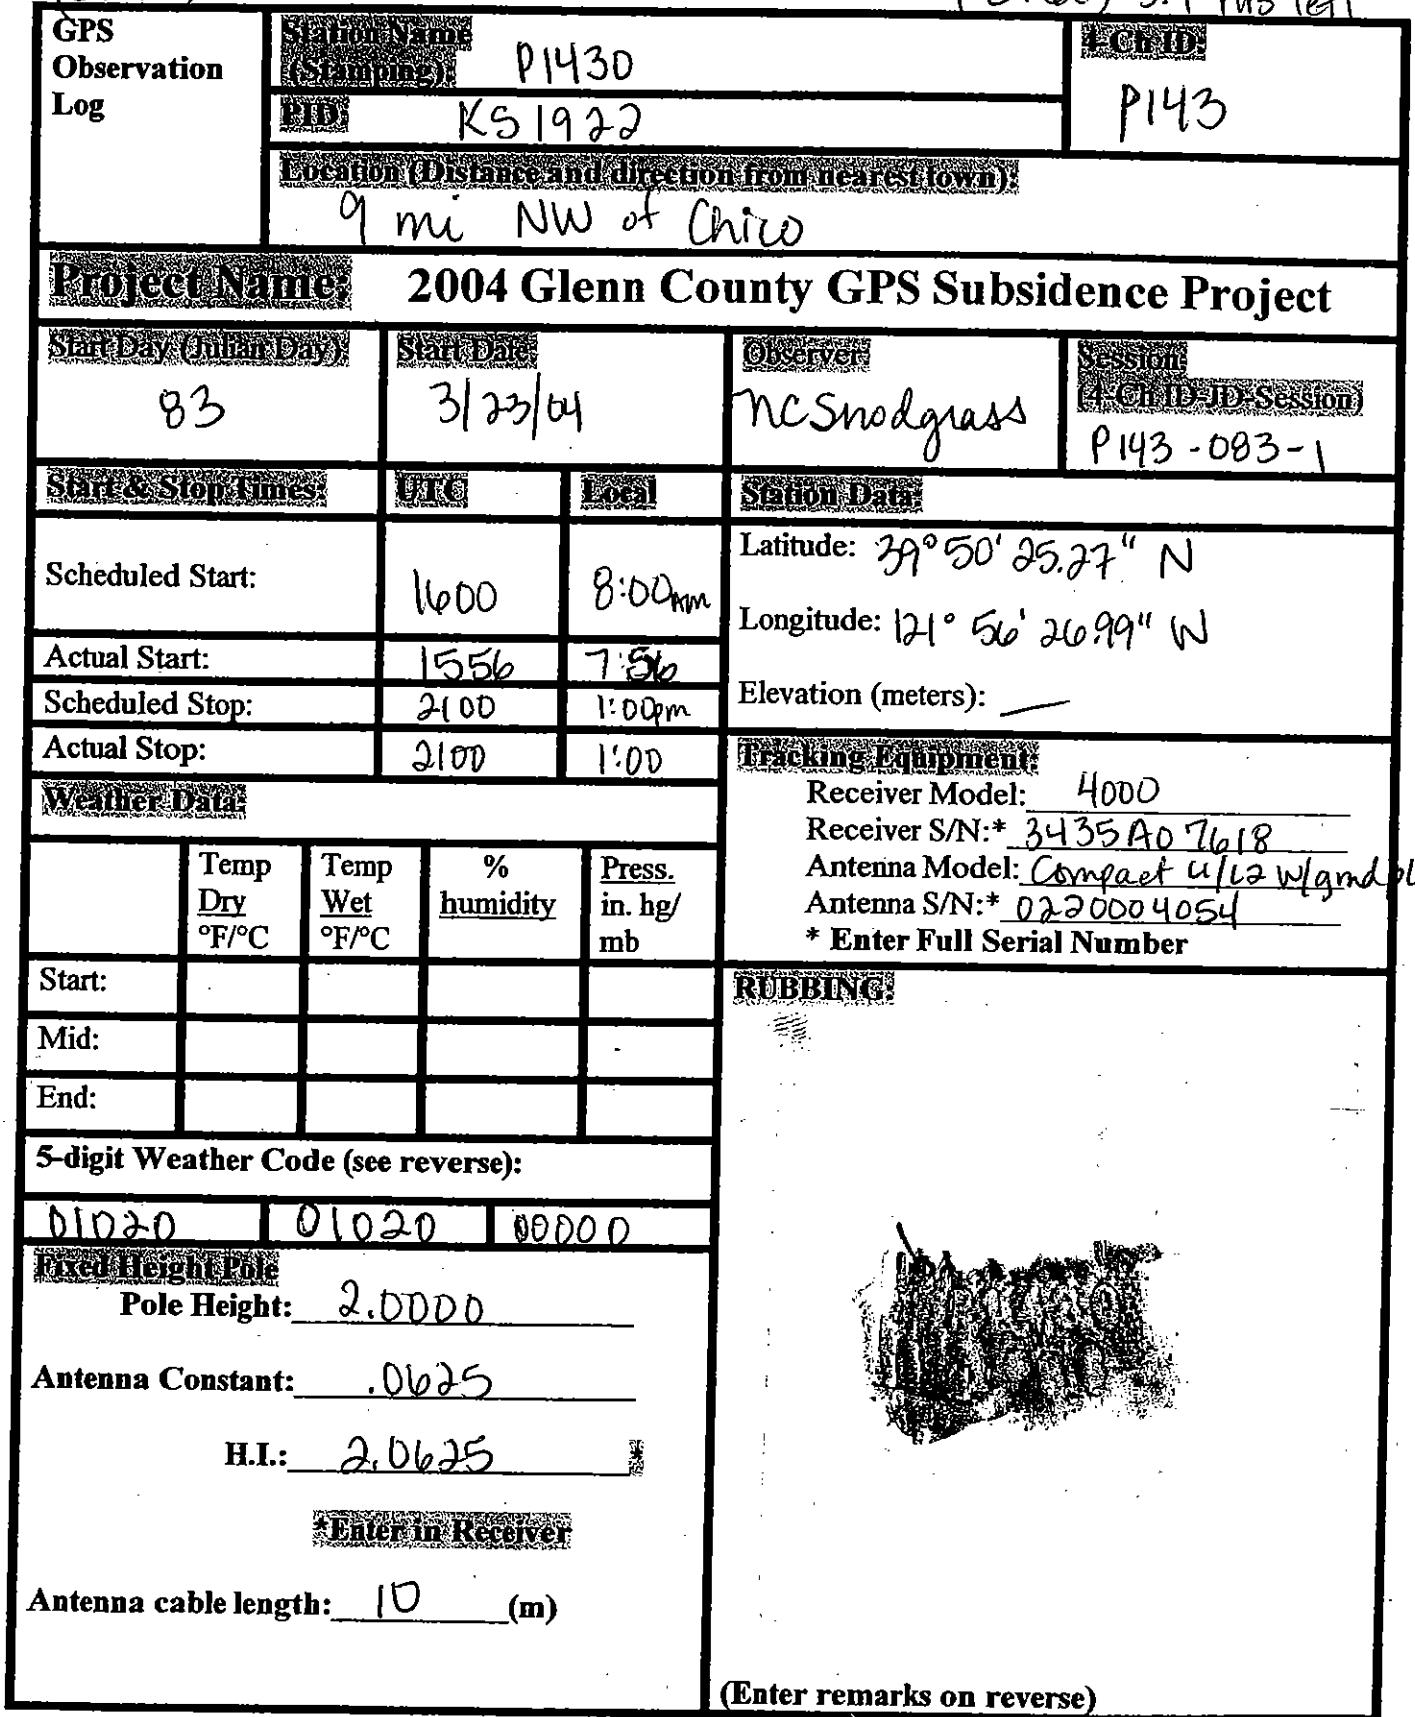 GPS
Observation
Log
Station Name
(Stamping): P1430
4-Ch ID:
P143
PID: KS1922
Location (Distance and direction from nearest town):
9 mi NW of Chico
Project Name: 2004 Glenn County GPS Subsidence Project
Start Day (Julian Day):
83
Start Date:
3/23/04
Observer:
NCSnodgrass
Session:
(4-Ch ID-JD-Session)
P143-083-1
Start & Stop Times: UTC Local
Scheduled Start: 1600 8:00AM
Actual Start: 1556 7:56
Scheduled Stop: 2100 1:00pm
Actual Stop: 2100 1:00
Station Data:
Latitude: 39° 50' 25.27" N
Longitude: 121° 56' 26.99" W
Elevation (meters): —
Tracking Equipment:
Receiver Model: 4000
Receiver S/N:* 3435A07618
Antenna Model: Compact L1/L2 W/grnd pl
Antenna S/N:* 0220004054
* Enter Full Serial Number
Weather Data:
Temp
Dry
°F/°C
Temp
Wet
°F/°C
%
humidity
Press.
in. hg/
mb
Start:
Mid:
End:
5-digit Weather Code (see reverse):
01020 01020 00000
Fixed Height Pole
Pole Height: 2.0000
Antenna Constant: .0625
H.I.: 2.0625 *
*Enter in Receiver
Antenna cable length: 10 (m)
RUBBING:
(Enter remarks on reverse)